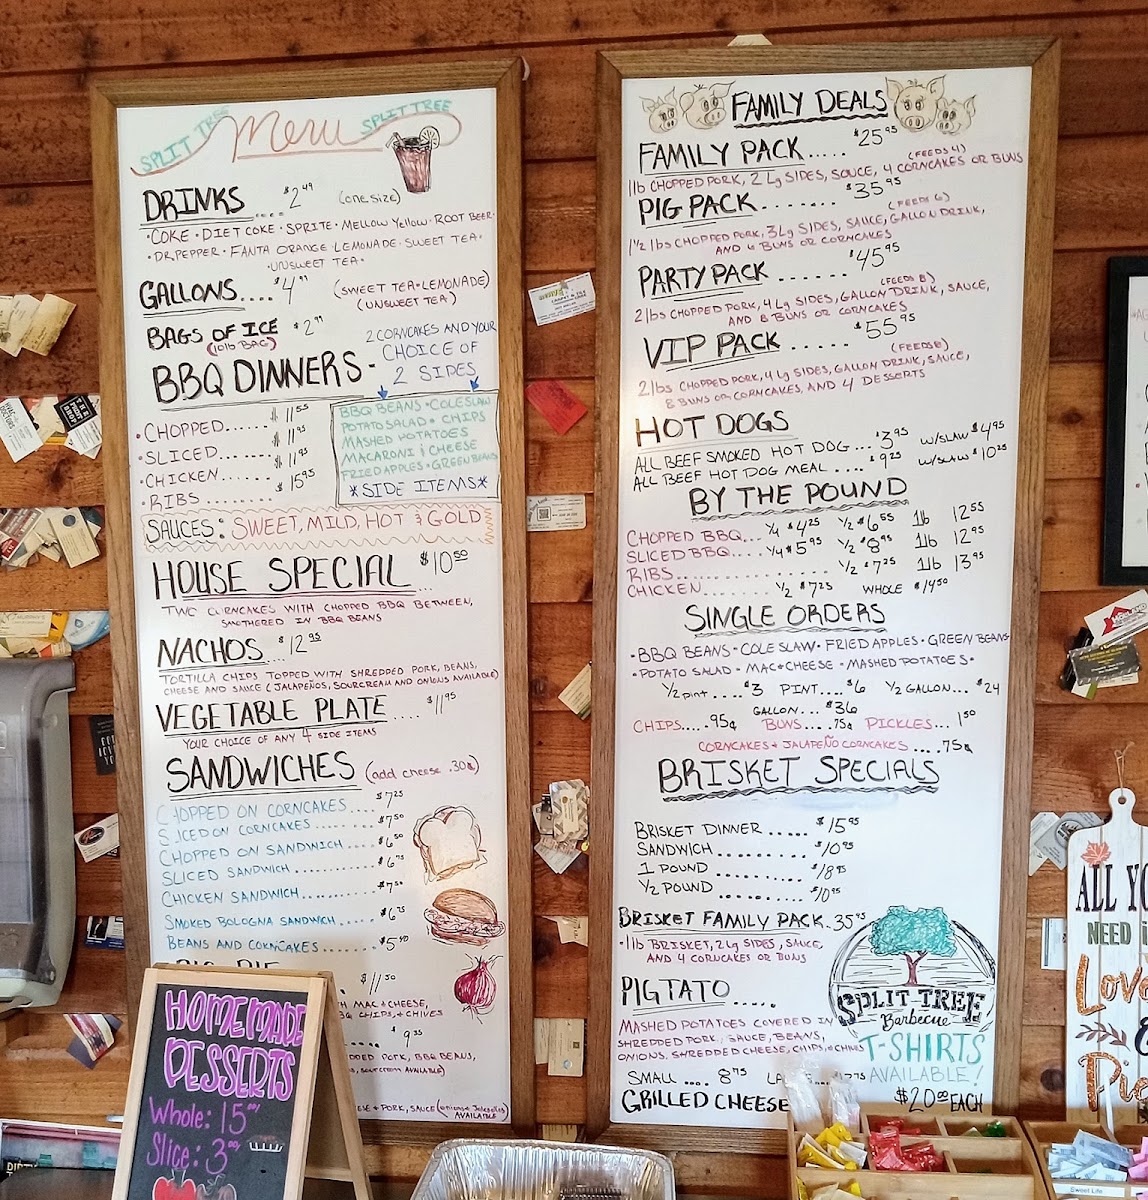 SPLIT TREE Menu SPLIT TREE
DRINKS.... $2.49 (one size)
•COKE • DIET COKE • SPRITE • MELLOW YELLOW • ROOT BEER•
•DR.PEPPER • FANTA ORANGE • LEMONADE • SWEET TEA•
•UNSWEET TEA•
GALLONS.... $4 (SWEET TEA•LEMONADE)
(UNSWEET TEA)
BAGS OF ICE $2.99
(10lb BAG)
BBQ DINNERS- 2 CORNCAKES AND YOUR
CHOICE OF
2 SIDES
•CHOPPED...... $11.55
•SLICED....... $11.95
•CHICKEN....... $11.95
•RIBS.......... $15.95
BBQ BEANS • COLESLAW
POTATO SALAD • CHIPS
MASHED POTATOES
MACARONI & CHEESE
FRIED APPLES • GREEN BEANS
*SIDE ITEMS*
SAUCES: SWEET, MILD, HOT & GOLD
HOUSE SPECIAL... $10.50
TWO CORNCAKES WITH CHOPPED BBQ BETWEEN,
SMOTHERED IN BBQ BEANS
NACHOS... $12.95
TORTILLA CHIPS TOPPED WITH SHREDDED PORK, BEANS,
CHEESE AND SAUCE (JALAPEÑOS, SOURCREAM AND ONIONS AVAILABLE)
VEGETABLE PLATE .... $11.95
YOUR CHOICE OF ANY 4 SIDE ITEMS
SANDWICHES (add cheese .30¢)
CHOPPED ON CORNCAKES.... $7.25
SLICED ON CORNCAKES ........ $7.50
CHOPPED ON SANDWICH..... $6.50
SLICED SANDWICH ........... $6.75
CHICKEN SANDWICH......... $7.50
SMOKED BOLOGNA SANDWICH ..... $6.75
BEANS AND CORNCAKES........ $5.40
$11.50
MAC & CHEESE,
CHIPS, & CHIVES
..... $9.35
PORK, BBQ BEANS,
SOURCREAM AVAILABLE)
& PORK, SAUCE (onions & Jalapeños
AVAILABLE
HOMEMADE
DESSERTS
Whole: 15.00/
Slice: 3.00/
FAMILY DEALS
FAMILY PACK..... $25.95
(FEEDS 4)
1lb CHOPPED PORK, 2 Lg SIDES, SAUCE, 4 CORNCAKES OR BUNS
PIG PACK....... $35.95
(FEEDS 6)
1½ lbs CHOPPED PORK, 3Lg SIDES, SAUCE, GALLON DRINK,
AND 6 BUNS OR CORNCAKES
PARTY PACK ....... $45.95
(FEEDS 8)
2lbs CHOPPED PORK, 4 Lg SIDES, GALLON DRINK, SAUCE,
AND 8 BUNS OR CORNCAKES
VIP PACK ...... $55.95
(FEEDS 8)
2lbs CHOPPED PORK, 4 Lg SIDES, GALLON DRINK, SAUCE,
8 BUNS OR CORNCAKES, AND 4 DESSERTS
HOT DOGS
ALL BEEF SMOKED HOT DOG ... $3.95 W/SLAW $4.95
ALL BEEF HOT DOG MEAL .... $9.25 W/SLAW $10.25
BY THE POUND
CHOPPED BBQ... ¼ $4.25 ½ $6.55 1lb 12.55
SLICED BBQ.... ¼ $5.95 ½ $8.95 1lb 12.95
RIBS............ ½ $7.25 1lb 13.95
CHICKEN.......... ½ $7.25 WHOLE $14.50
SINGLE ORDERS
•BBQ BEANS • COLE SLAW • FRIED APPLES • GREEN BEANS
•POTATO SALAD • MAC & CHEESE • MASHED POTATOES•
½ pint .... $3 PINT.... $6 ½ GALLON... $24
GALLON... $36
CHIPS.....95¢ BUNS.....75¢ PICKLES... 1.50
CORNCAKES & JALAPEÑO CORNCAKES ....75¢
BRISKET SPECIALS
BRISKET DINNER ...... $15.95
SANDWICH ........... $10.95
1 POUND ........... $18.95
½ POUND .......... $10.95
BRISKET FAMILY PACK. 35.95
•1lb BRISKET, 2 Lg SIDES, SAUCE,
AND 4 CORNCAKES OR BUNS
PIGTATO.....
MASHED POTATOES COVERED IN
SHREDDED PORK, SAUCE, BEANS,
ONIONS, SHREDDED CHEESE, CHIPS, & CHIVES
SMALL .... 8.75
GRILLED CHEESE
SPLIT TREE
Barbecue
T-SHIRTS
AVAILABLE!
$20.00 EACH
ALL YO
NEED i
Love
Pie
Sweet Life